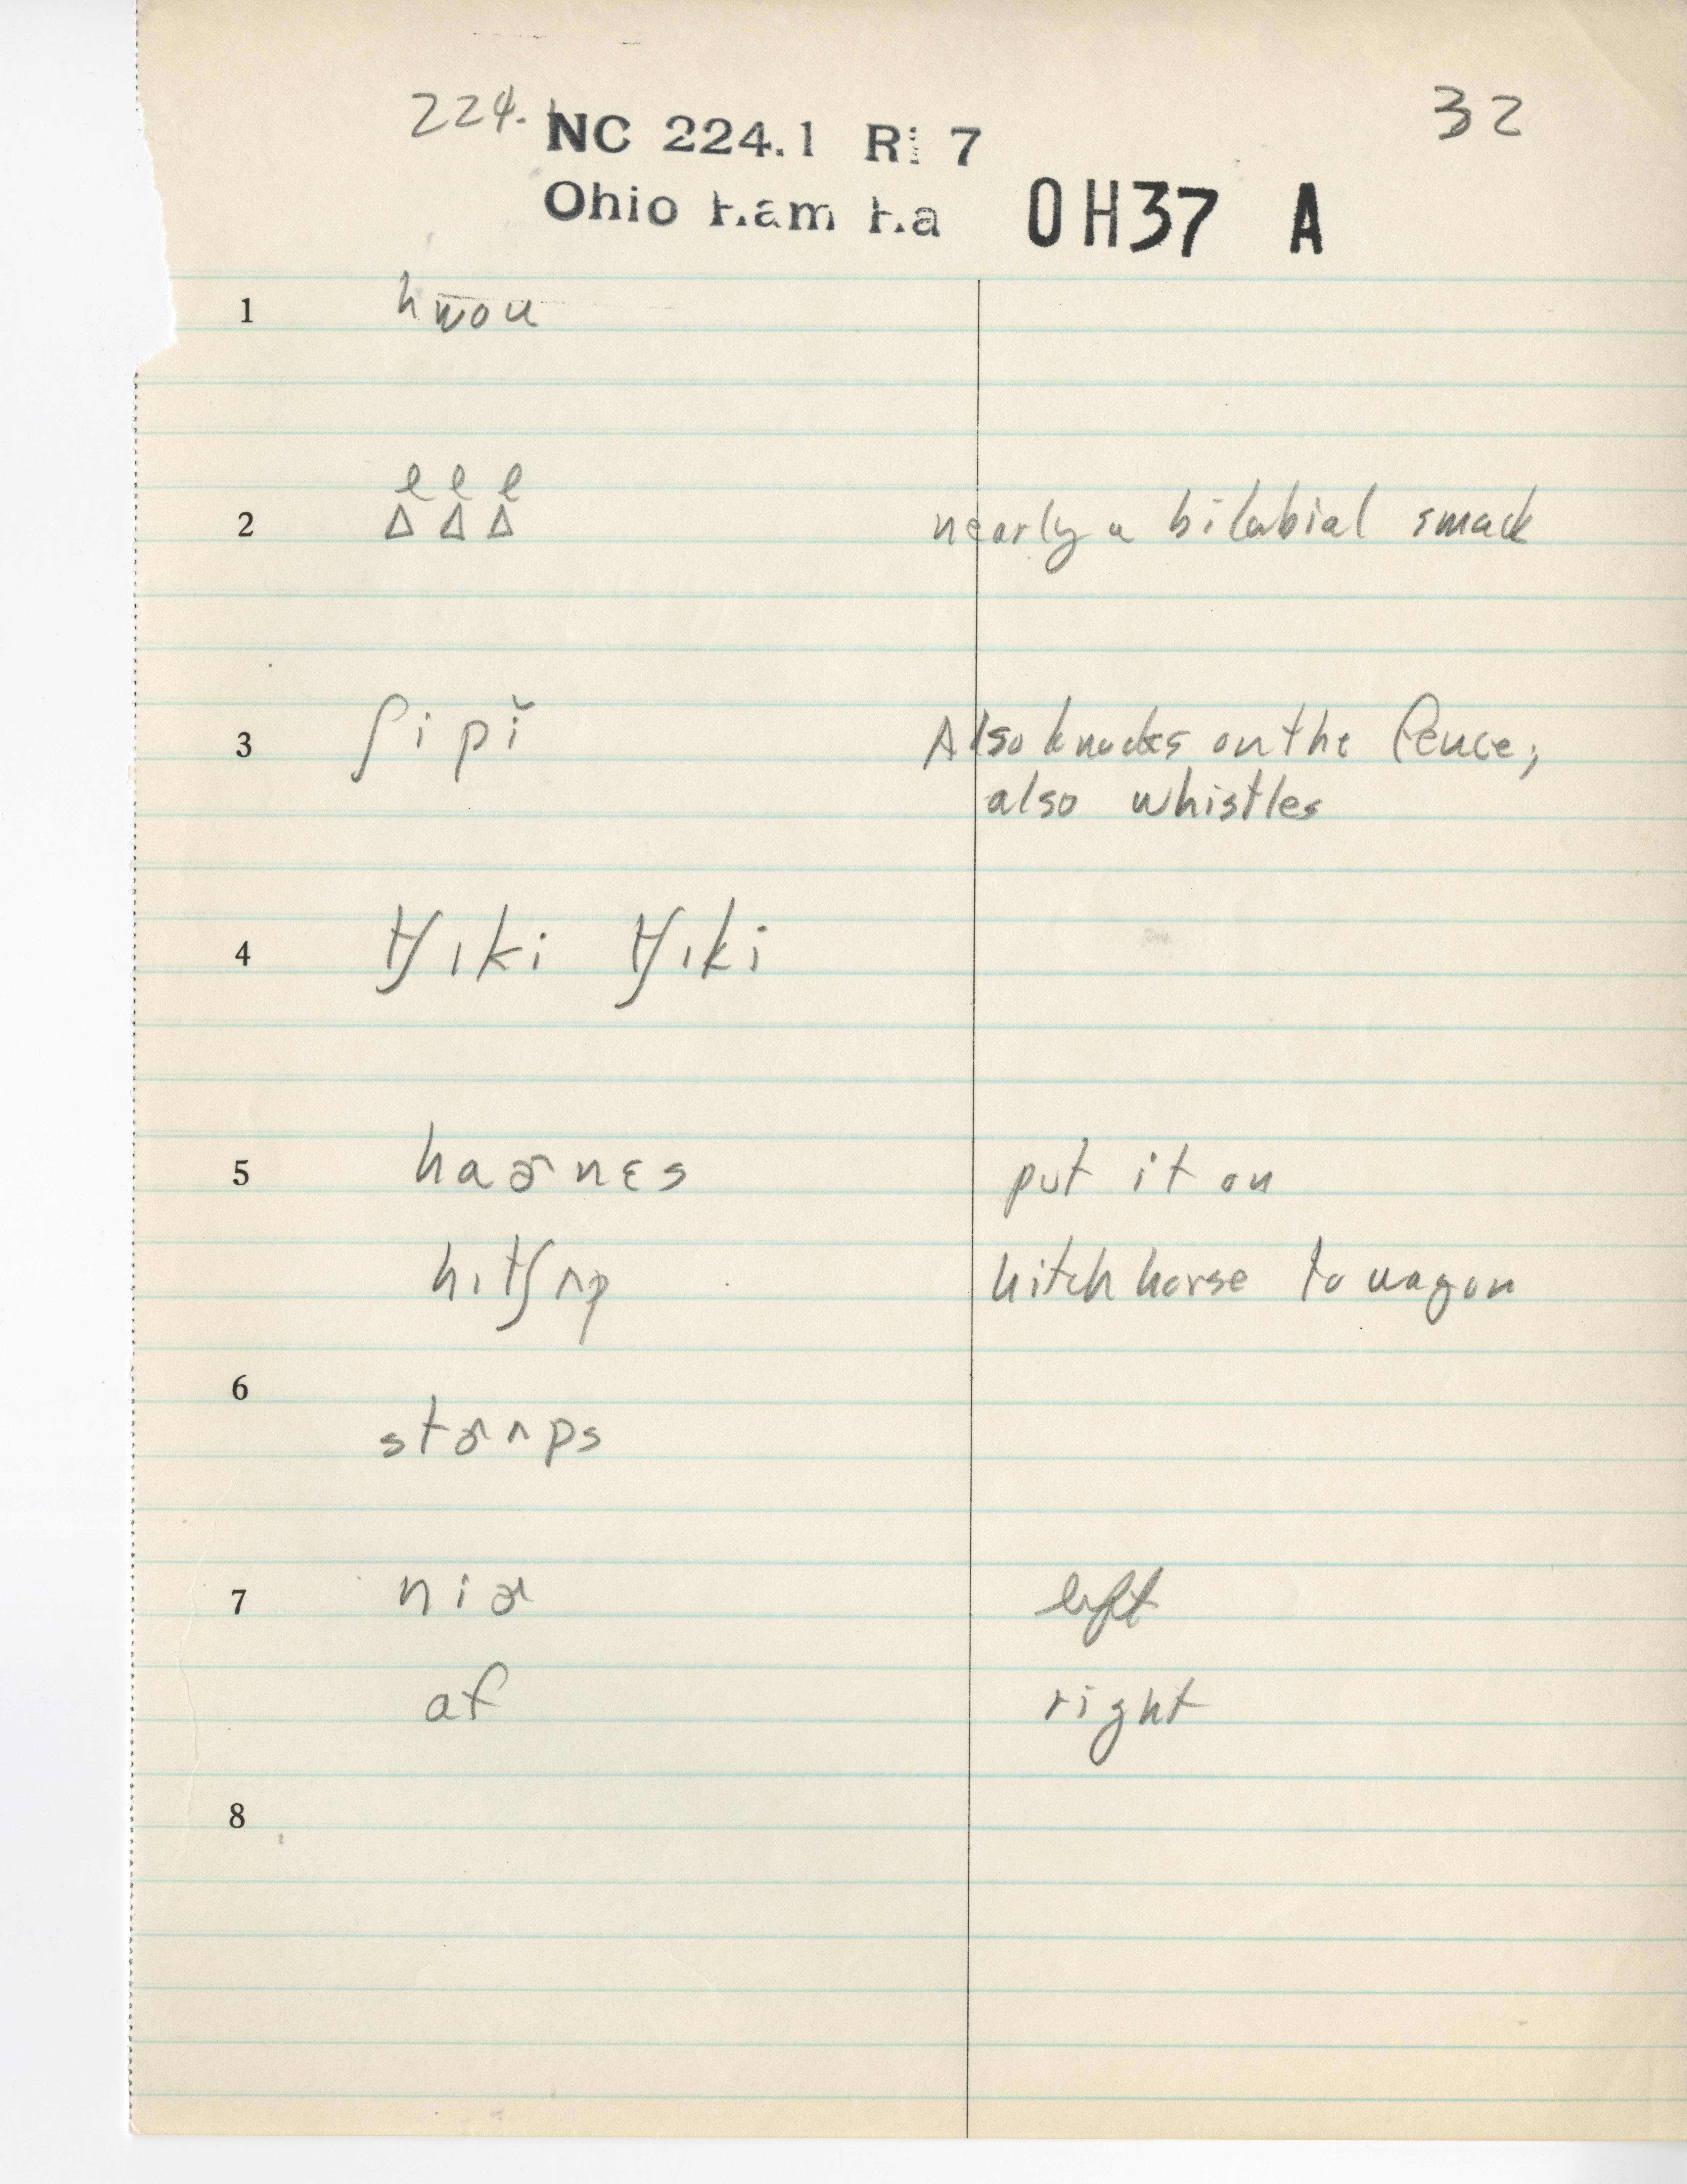 224. NC 224.1 R 7 32
Ohio OH37 A
1 hwou
2 nearly a bilabial smack
3 ʃipĭ Also knocks on the fence;
also whistles
4 tʃɪki tʃɪki
5 haɚnɛs put it on
hɪtʃʌp hitch horse to wagon
6
stɚʌps
7 niɚ left
af right
8